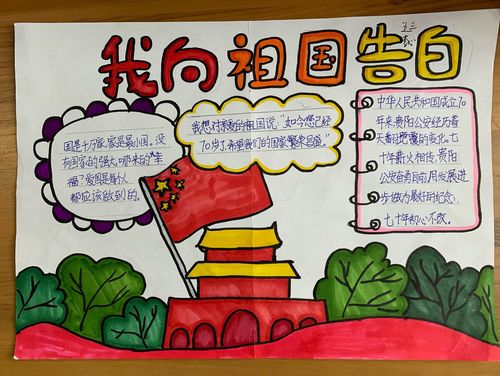 我向祖国告白
五三
国是千万家,家是最小国。没
有国家的强大,哪来的"幸
福?爱国是每个人
都应该做到的。
我想对亲爱的祖国说:"如今您已经
70岁了,希望我们的国家繁荣昌盛。"
中华人民共和国成立70
年来,贵阳公安经历着
天翻地覆的变化。七
十年薪火相传,贵阳
公安奋勇前用发展进
步做为最好的纪念,
七十年初心不改。